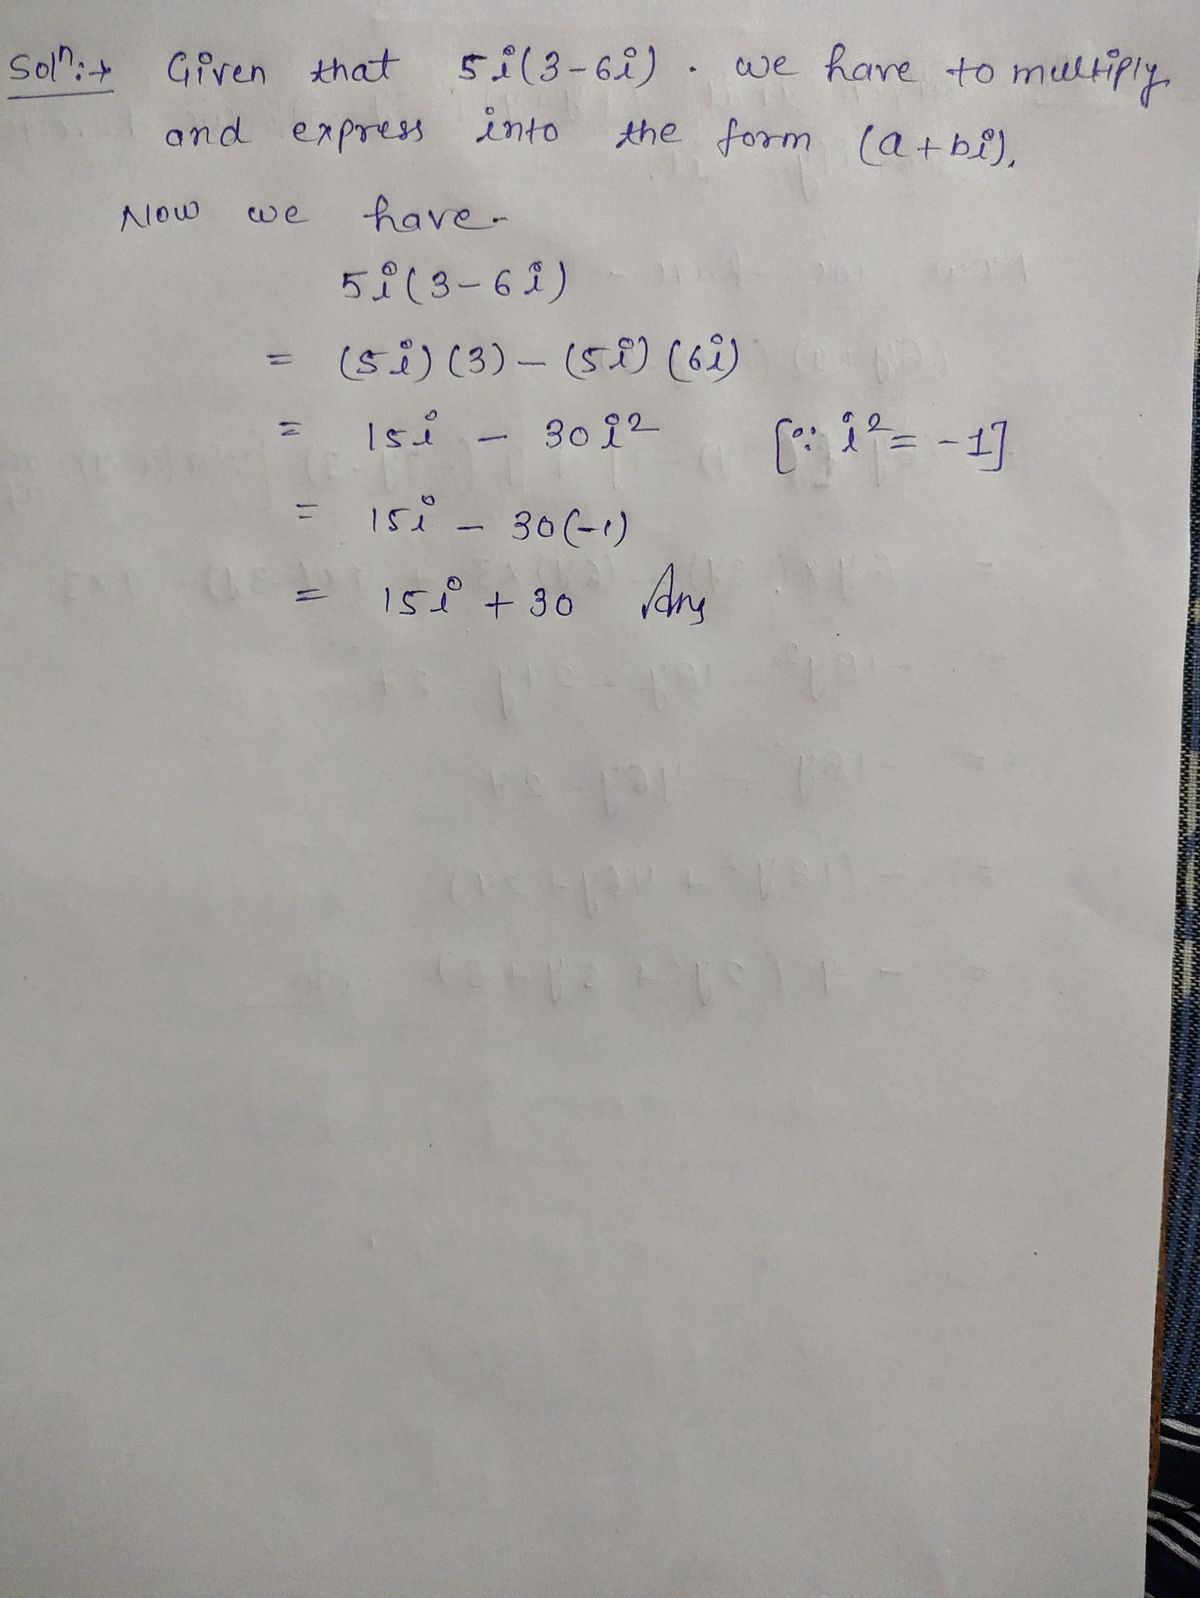 Solⁿ:→ Given that 5i(3-6i). we have to multiply
and express into the form (a+bi).
Now we have-
5i(3-6i)
= (5i)(3) - (5i)(6i)
= 15i - 30i² [∵ i² = -1]
= 15i - 30(-1)
= 15i + 30 Ans